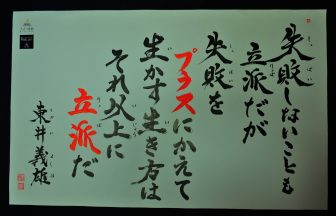 失敗しないことも
立派だが
失敗を
プラスにかえて
生かす生き方は
それ以上に
立派だ
東井義雄